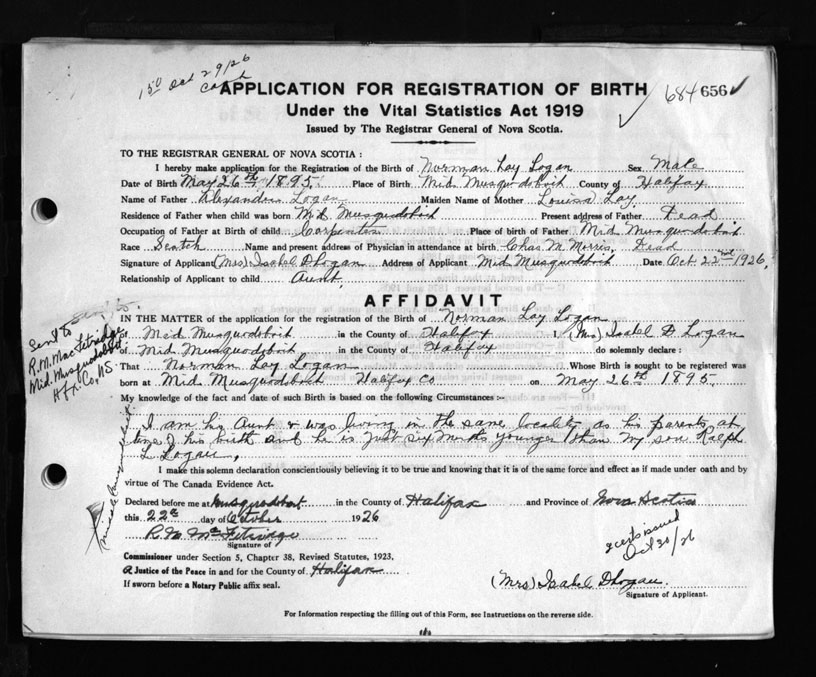 150 Oct 29/26
APPLICATION FOR REGISTRATION OF BIRTH
684 656
Under the Vital Statistics Act 1919
Issued by The Registrar General of Nova Scotia.
TO THE REGISTRAR GENERAL OF NOVA SCOTIA :
I hereby make application for the Registration of the Birth of Norman Lay Logan Sex Male
Date of Birth May 26th 1895. Place of Birth Mid Musquodoboit County of Halifax
Name of Father Alexander Logan Maiden Name of Mother Louisa Lay
Residence of Father when child was born Mid Musquodoboit Present address of Father Dead
Occupation of Father at Birth of child Carpenter Place of birth of Father Mid Musquodoboit
Race Scotch Name and present address of Physician in attendance at birth Chas M Morris, Dead
Signature of Applicant (Mrs) Isabel D Logan Address of Applicant Mid Musquodoboit Date Oct 22nd 1926.
Relationship of Applicant to child Aunt.
AFFIDAVIT
IN THE MATTER of the application for the registration of the Birth of Norman Lay Logan
of Mid Musquodoboit in the County of Halifax I, (Mrs) Isabel D Logan
of Mid Musquodoboit in the County of Halifax do solemnly declare :
That Norman Lay Logan Whose Birth is sought to be registered was
born at Mid Musquodoboit Halifax Co on May 26th 1895
My knowledge of the fact and date of such Birth is based on the following Circumstances :-
I am his Aunt & was living in the same locality as his parents at
time of his birth and he is just six months younger than my son Ralph
L Logan,
I make this solemn declaration conscientiously believing it to be true and knowing that it is of the same force and effect as if made under oath and by
virtue of The Canada Evidence Act.
Declared before me at Musquodoboit in the County of Halifax and Province of Nova Scotia
this 22d day of October 1926
R. M. McFetridge
Signature of
Commissioner under Section 5, Chapter 38, Revised Statutes, 1923,
A Justice of the Peace in and for the County of Halifax
If sworn before a Notary Public affix seal.
(Mrs) Isabel D Logan.
Signature of Applicant.
For Information respecting the filling out of this Form, see Instructions on the reverse side.
Sent to
R. M. MacFetridge
Mid. Musquodoboit
Hfx. Co, NS
issued
Oct 30/26